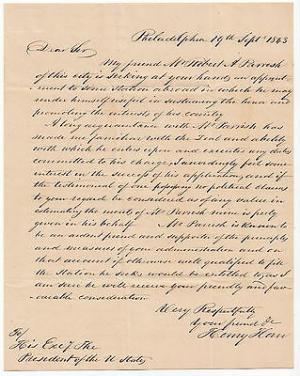 Philadelphia 19th Septr 1843
Dear Sir
My friend Mr Robert A Parrish
of this city is seeking at your hands an appoint
ment to some Station abroad in which he may
render himself useful in sustaining the honor and
promoting the interests of his country
A long acquaintance with Mr Parrish has
made me familiar with the zeal and ability
with which he enters upon and executes any duties
committed to his charge; I accordingly feel some
interest in the success of his application, and if
the testimonial of one possessing no political claims
to your regard be considered as of any value in
estimating the merit of Mr Parrish mine is freely
given in his behalf Mr Parrish is known to
be an ardent friend and supporter of the principles
and measures of your administration and on
that account if otherwise well qualified to fill
the Station he seeks would be entitled to, as I
am sure he will receive your friendly and fav
orable consideration
Very Respectfully
Your friend &c
Henry Horn
To
His Excy The
President of the U States